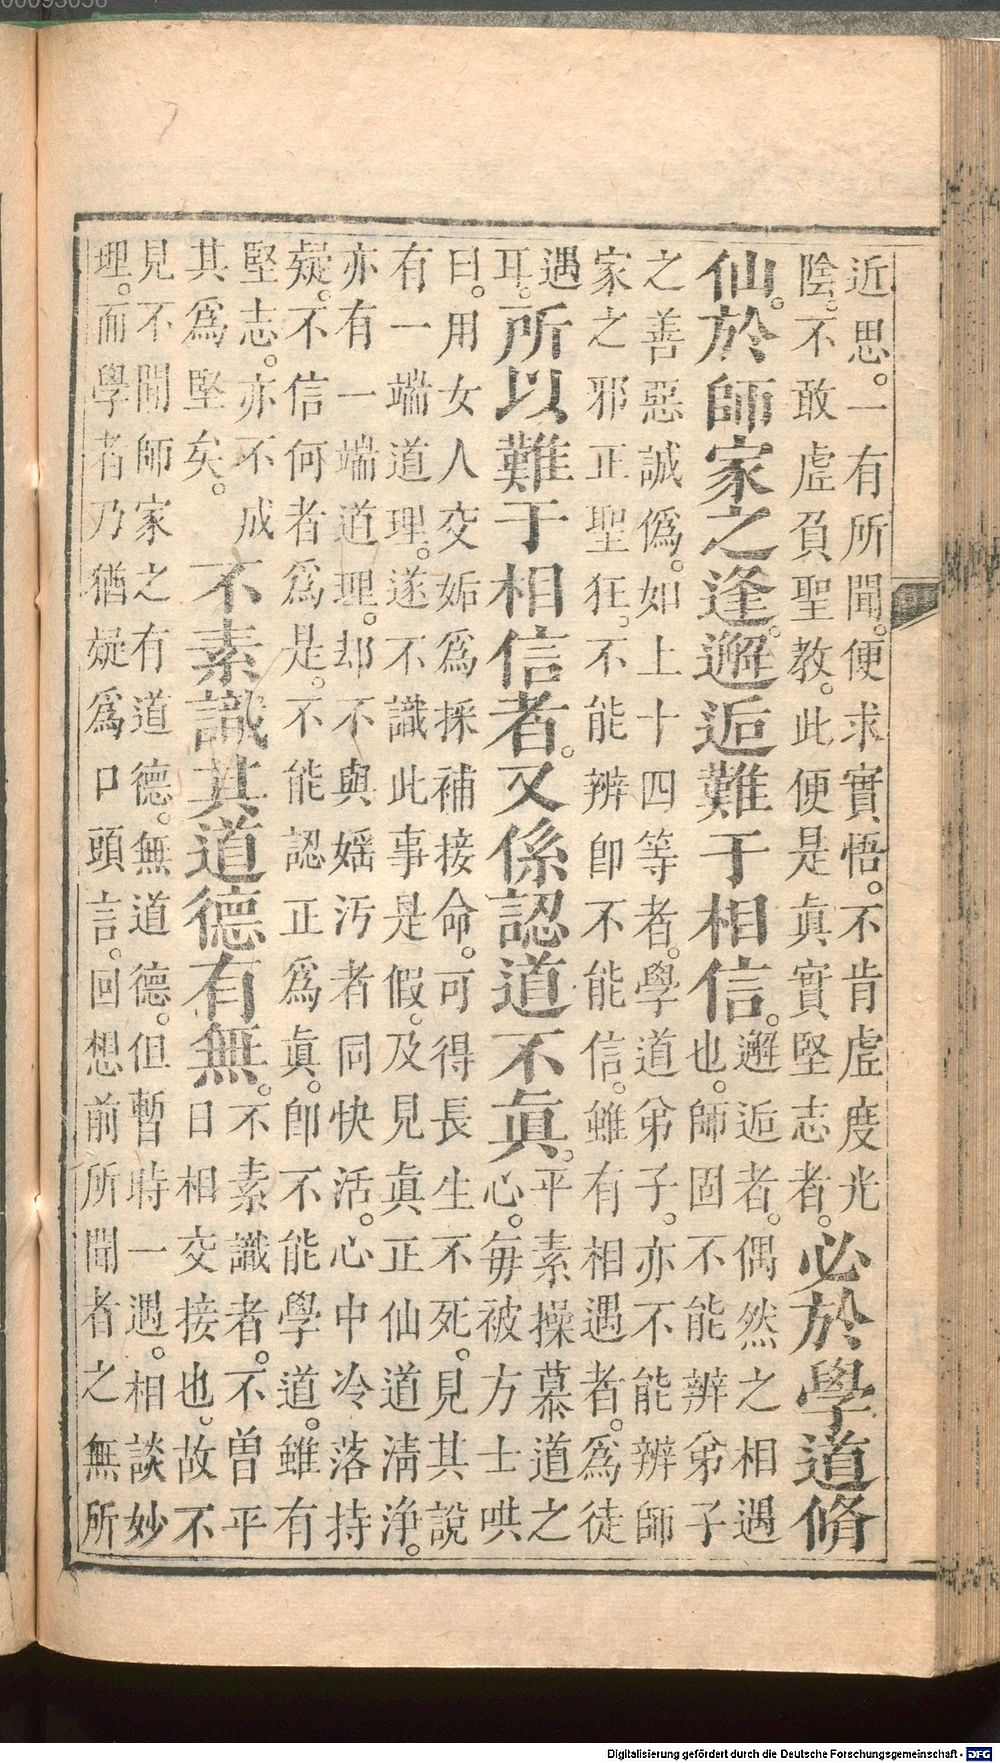 近思。一有所聞。便求實悟。不肯虛度光
陰。不敢虛負聖教。此便是眞實堅志者。
必於學道脩
仙。於師家之逢。邂逅難于相信。
邂逅者。偶然之相遇
也。師固不能辨弟子
之善惡誠僞。如上十四等者。學道弟子。亦不能辨師
家之邪正聖狂。不能辨卽不能信。雖有相遇者。爲徒
遇
耳。
所以難于相信者。又係認道不眞。
平素操慕道之
心。每被方士哄
曰。用女人交姤爲採補接命。可得長生不死。見其說
有一端道理。遂不識此事是假。及見眞正仙道淸淨。
亦有一端道理。却不與婬汚者同快活。心中冷落持
疑。不信何者爲是。不能認正爲眞。卽不能學道。雖有
堅志。亦不成
其爲堅矣。
不素識其道德有無。
不素識者。不曾平
日相交接也。故不
見不聞師家之有道德。無道德。但暫時一遇。相談妙
理。而學者乃猶疑爲口頭言。回想前所聞者之無所
Digitalisierung gefördert durch die Deutsche Forschungsgemeinschaft - DFG